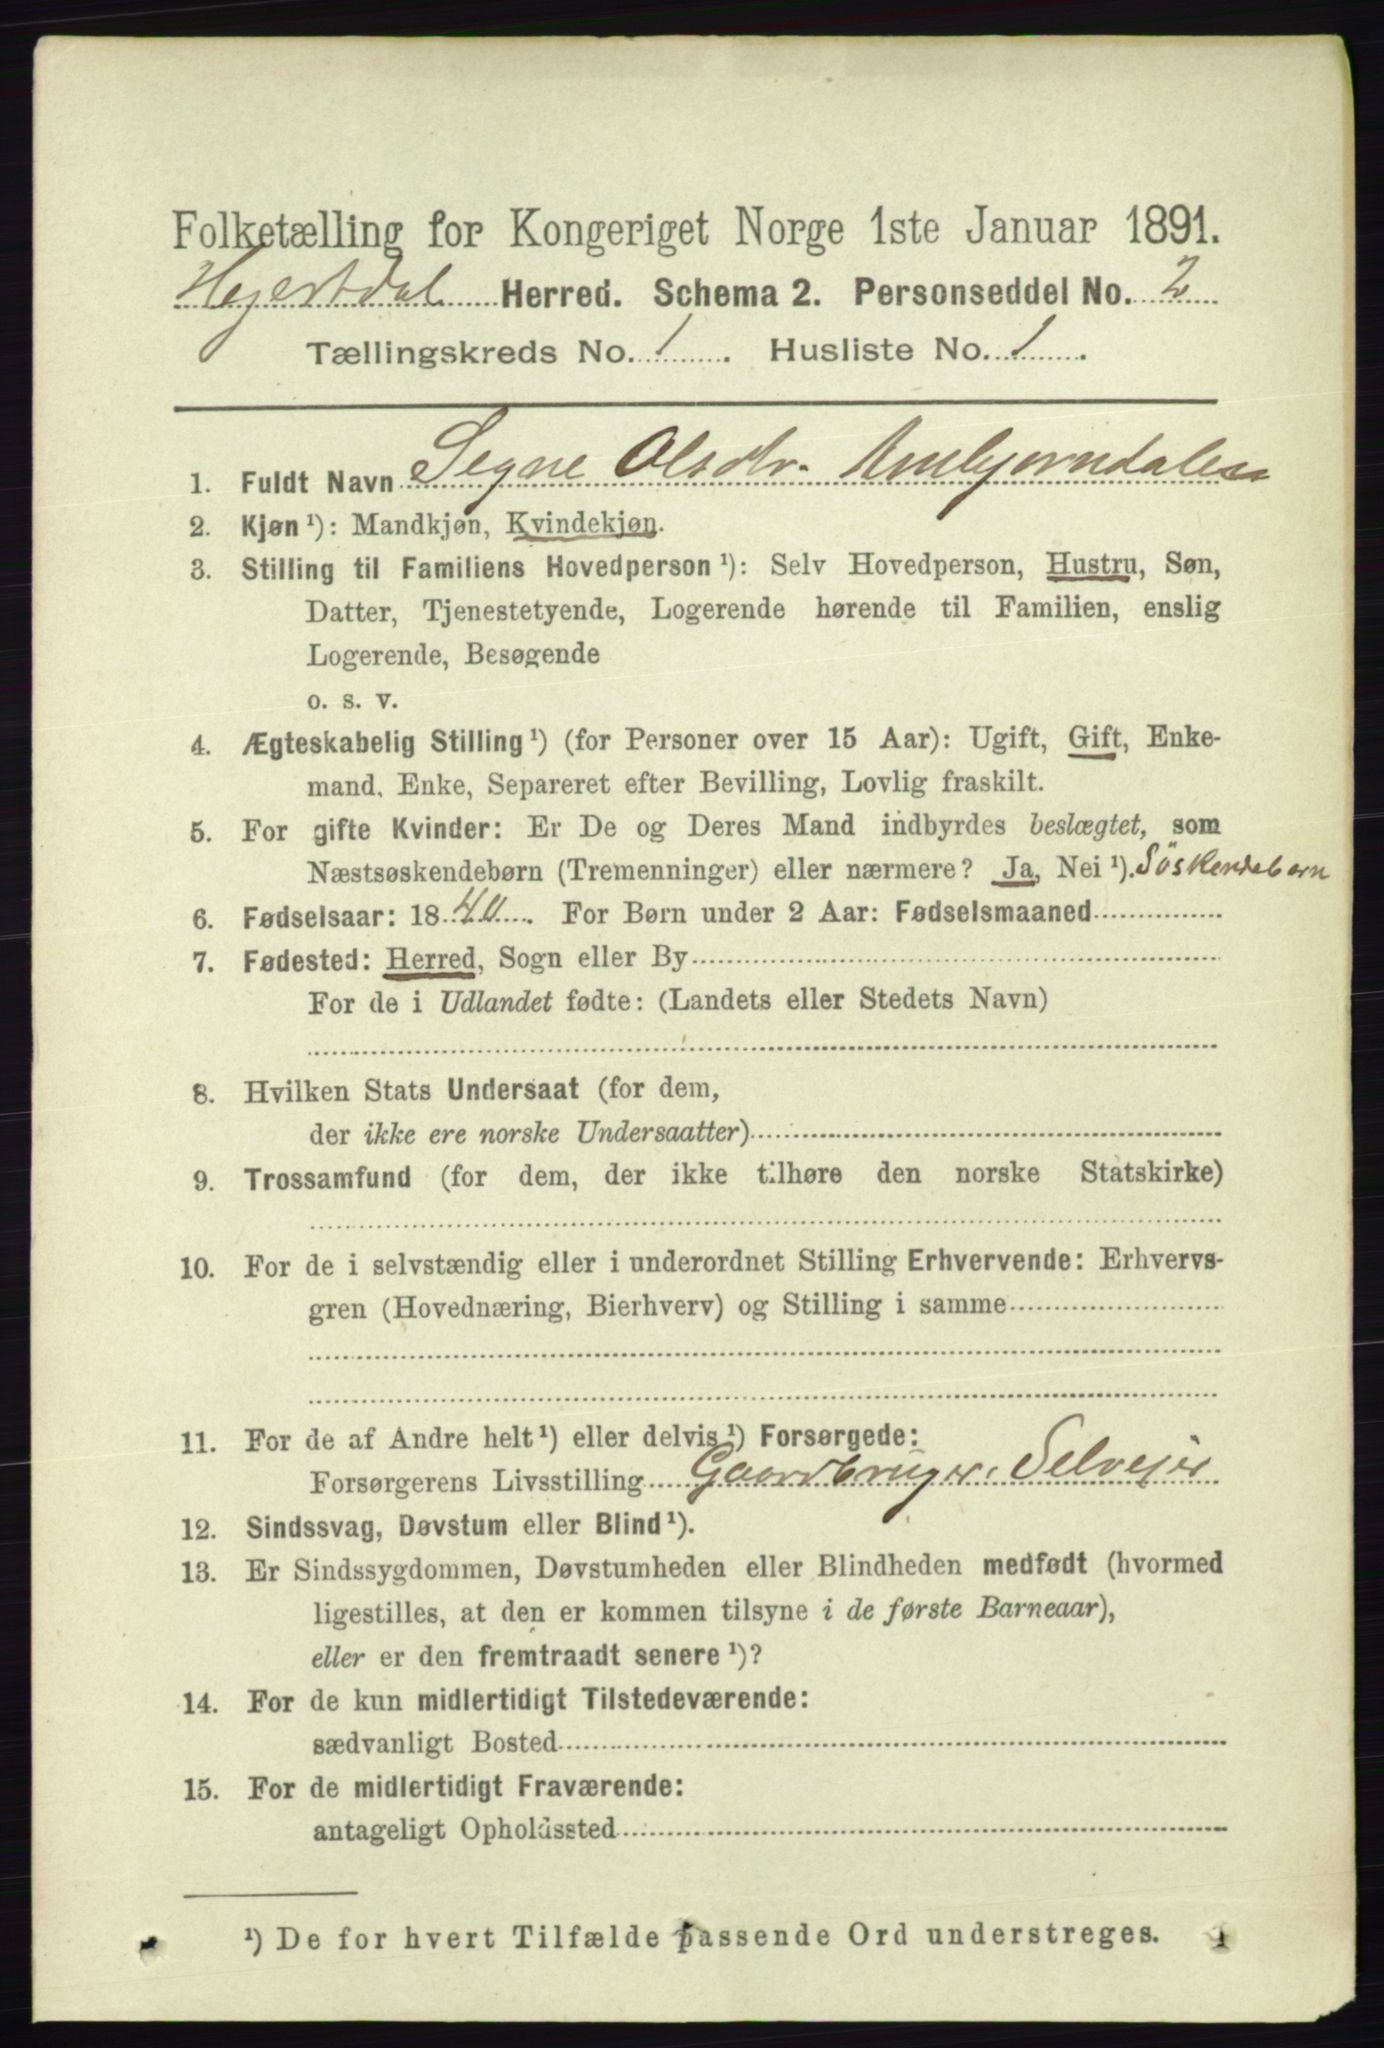 Folketælling for Kongeriget Norge 1ste Januar 1891.
Hejertdal Herred. Schema 2. Personseddel No. 2
Tællingskreds No. 1. Husliste No. 1.
1. Fuldt Navn Segne Olsdtr. Ambjorndalen
2. Kjøn ¹): Mandkjøn, Kvindekjøn.
3. Stilling til Familiens Hovedperson ¹): Selv Hovedperson, Hustru, Søn,
Datter, Tjenestetyende, Logerende hørende til Familien, enslig
Logerende, Besøgende
o. s. v.
4. Ægteskabelig Stilling ¹) (for Personer over 15 Aar): Ugift, Gift, Enke-
mand, Enke, Separeret efter Bevilling, Lovlig fraskilt.
5. For gifte Kvinder: Er De og Deres Mand indbyrdes beslægtet, som
Næstsøskendebørn (Tremenninger) eller nærmere? Ja, Nei ¹). Söskendebørn
6. Fødselsaar: 1840. For Børn under 2 Aar: Fødselsmaaned
7. Fødested: Herred, Sogn eller By
For de i Udlandet fødte: (Landets eller Stedets Navn)
8. Hvilken Stats Undersaat (for dem,
der ikke ere norske Undersaatter)
9. Trossamfund (for dem, der ikke tilhøre den norske Statskirke)
10. For de i selvstændig eller i underordnet Stilling Erhvervende: Erhvervs-
gren (Hovednæring, Bierhverv) og Stilling i samme
11. For de af Andre helt ¹) eller delvis ¹) Forsørgede:
Forsørgerens Livsstilling Gaardbruger. Selvejer
12. Sindssvag, Døvstum eller Blind ¹).
13. Er Sindssygdommen, Døvstumheden eller Blindheden medfødt (hvormed
ligestilles, at den er kommen tilsyne i de første Barneaar),
eller er den fremtraadt senere ¹)?
14. For de kun midlertidigt Tilstedeværende:
sædvanligt Bosted
15. For de midlertidigt Fraværende:
antageligt Opholdssted
¹) De for hvert Tilfælde passende Ord understreges. 1